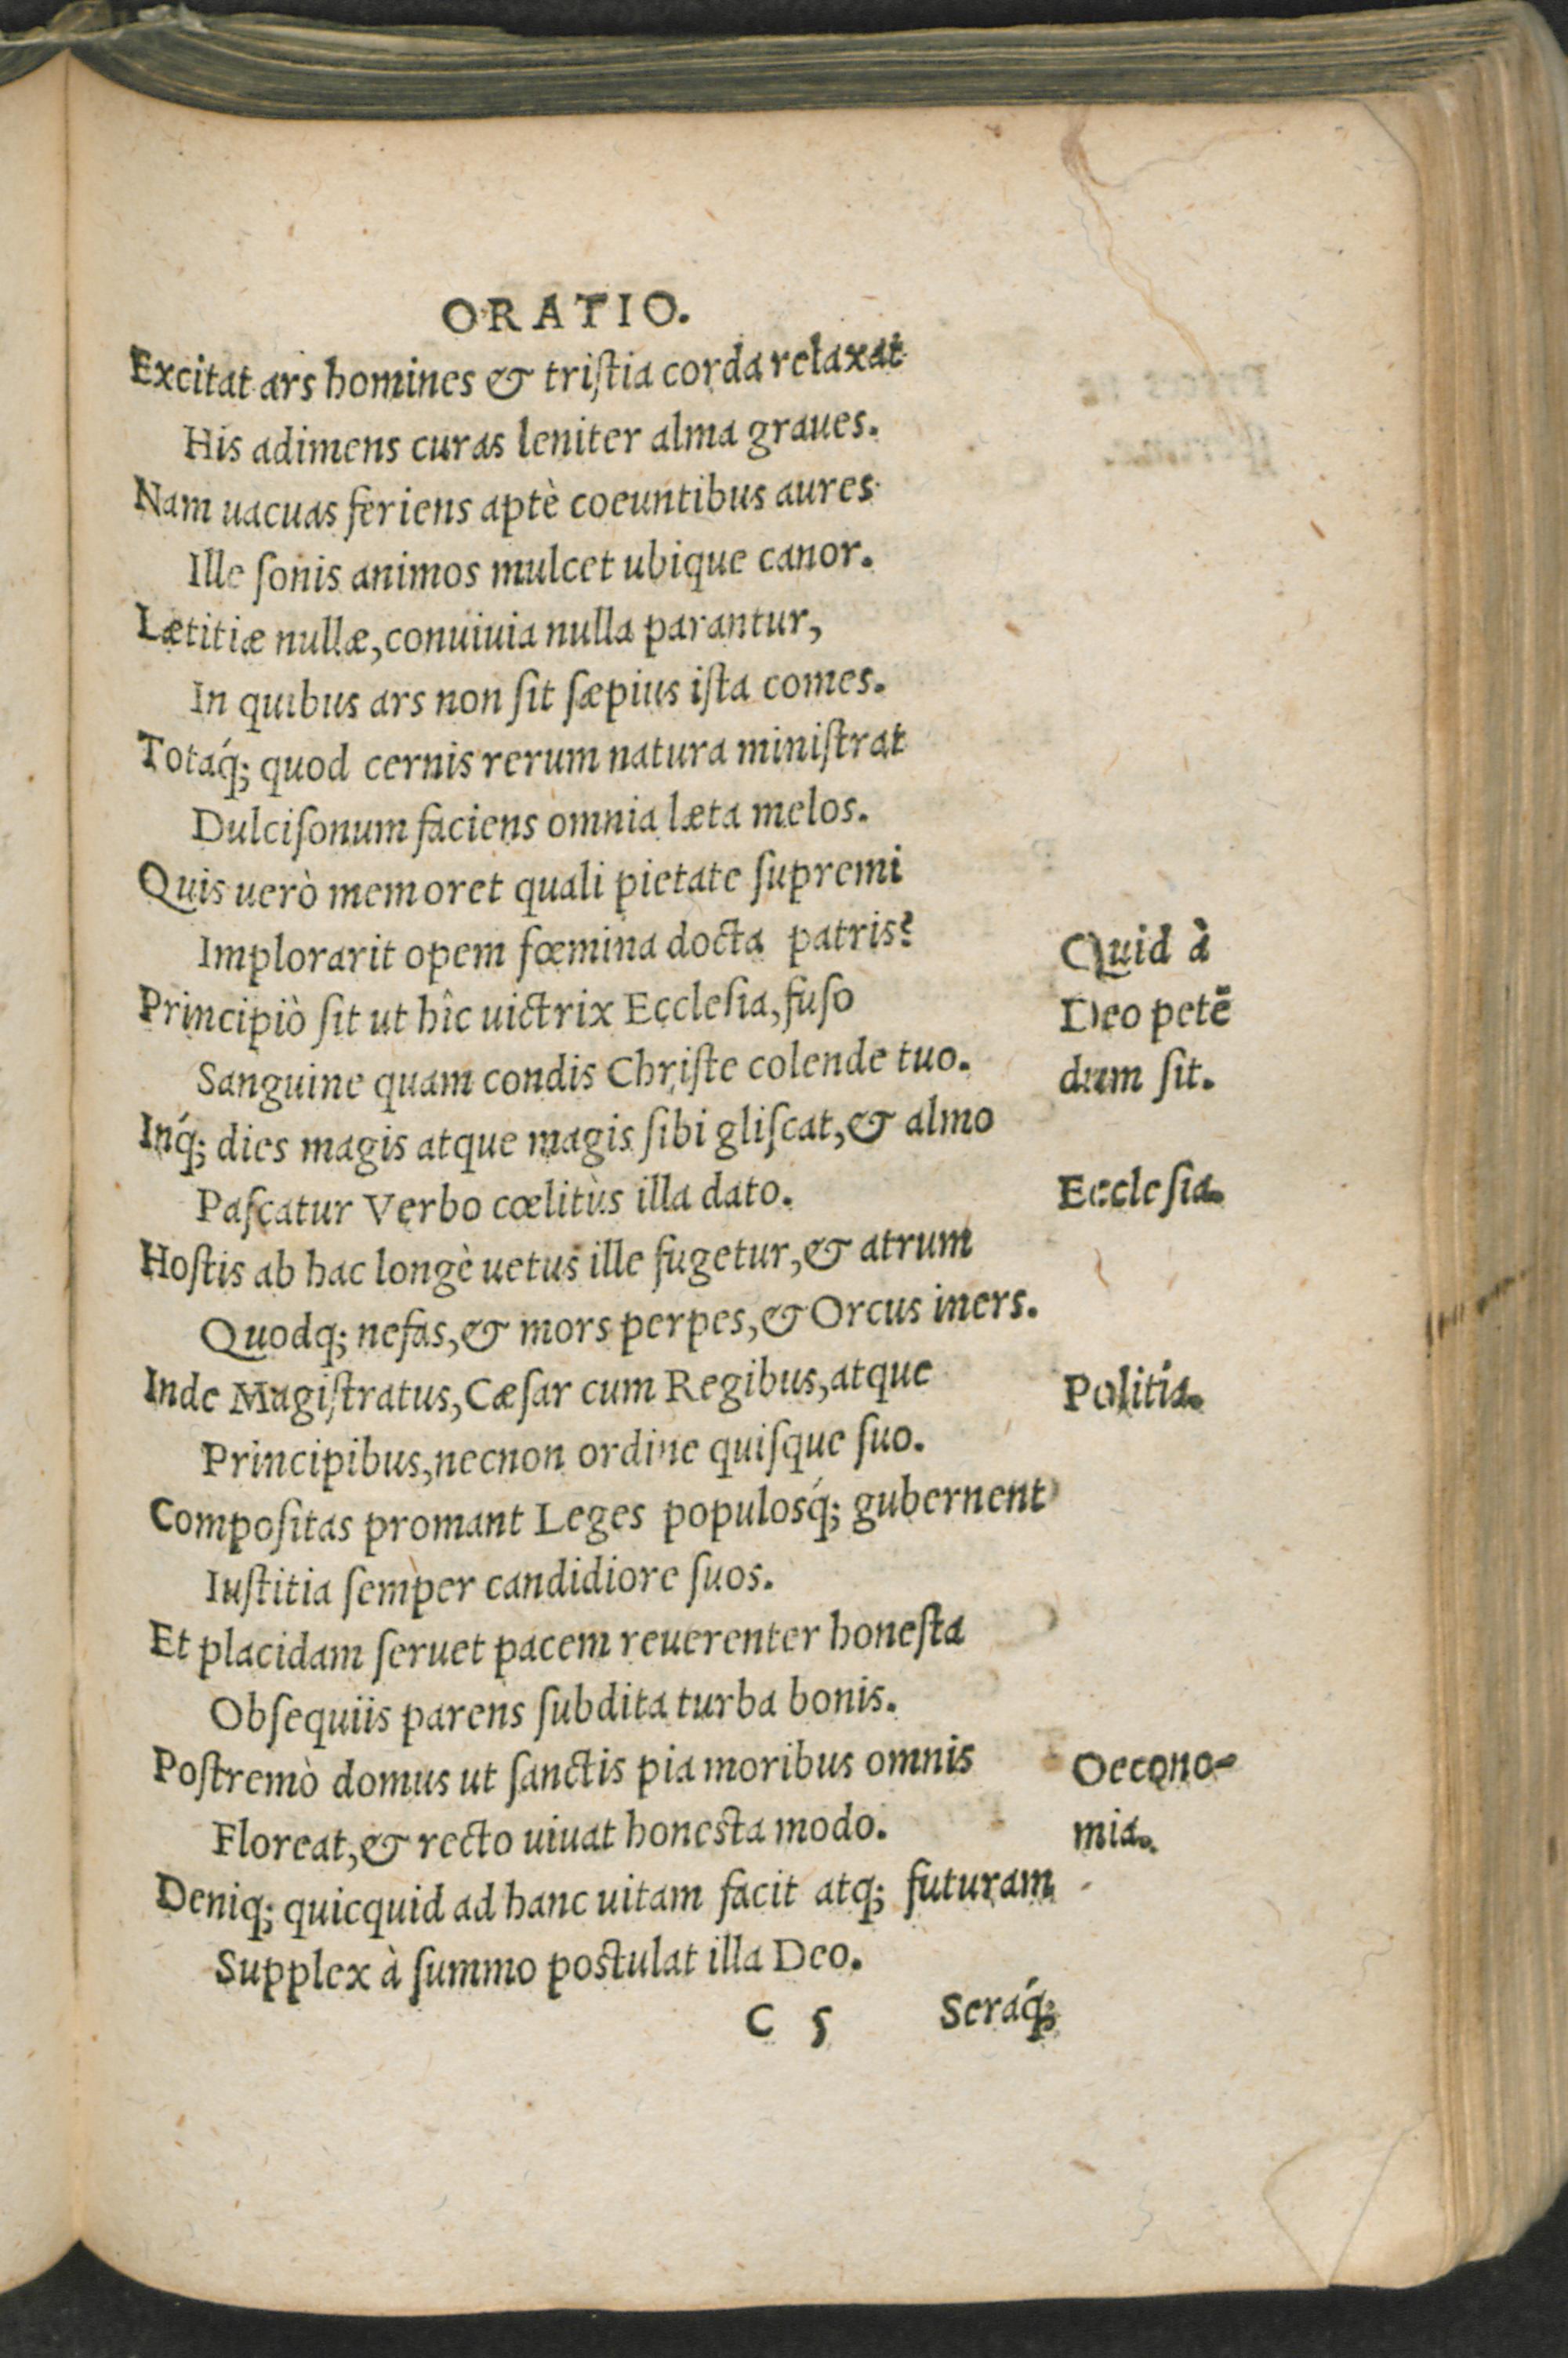 ORATIO.
Excitat ars homines & triſtia corda relaxat
His adimens curas leniter alma graues.
Nam uacuas feriens aptè coeuntibus aures
Ille ſonis animos mulcet ubique canor.
Lætitiæ nullæ, conuiuia nulla parantur,
In quibus ars non ſit ſæpius iſta comes.
Totaq́; quod cernis rerum natura miniſtrat
Dulciſonum faciens omnia læta melos.
Quis uerò memoret quali pietate ſupremi
Implorarit opem fœmina docta patris?
Quid à
Principiò ſit ut hîc uictrix Eccleſia, fuſo
Deo petē
Sanguine quam condis Chriſte colende tuo.
dum ſit.
Inq́; dies magis atque magis ſibi gliſcat, & almo
Paſcatur Verbo cœlitùs illa dato.
Eccleſia.
Hoſtis ab hac longè uetus ille fugetur, & atrum
Quodq; nefas, & mors perpes, & Orcus iners.
Inde Magiſtratus, Cæſar cum Regibus, atque
Politia.
Principibus, necnon ordine quiſque ſuo.
Compoſitas promant Leges populosq́; gubernent
Iuſtitia ſemper candidiore ſuos.
Et placidam ſeruet pacem reuerenter honeſta
Obſequiis parens ſubdita turba bonis.
Poſtremò domus ut ſanctis pia moribus omnis
Oecono-
Floreat, & recto uiuat honeſta modo.
mia.
Deniq; quicquid ad hanc uitam facit atq; futuram
Supplex à ſummo poſtulat illa Deo.
C 5 Seraq́;